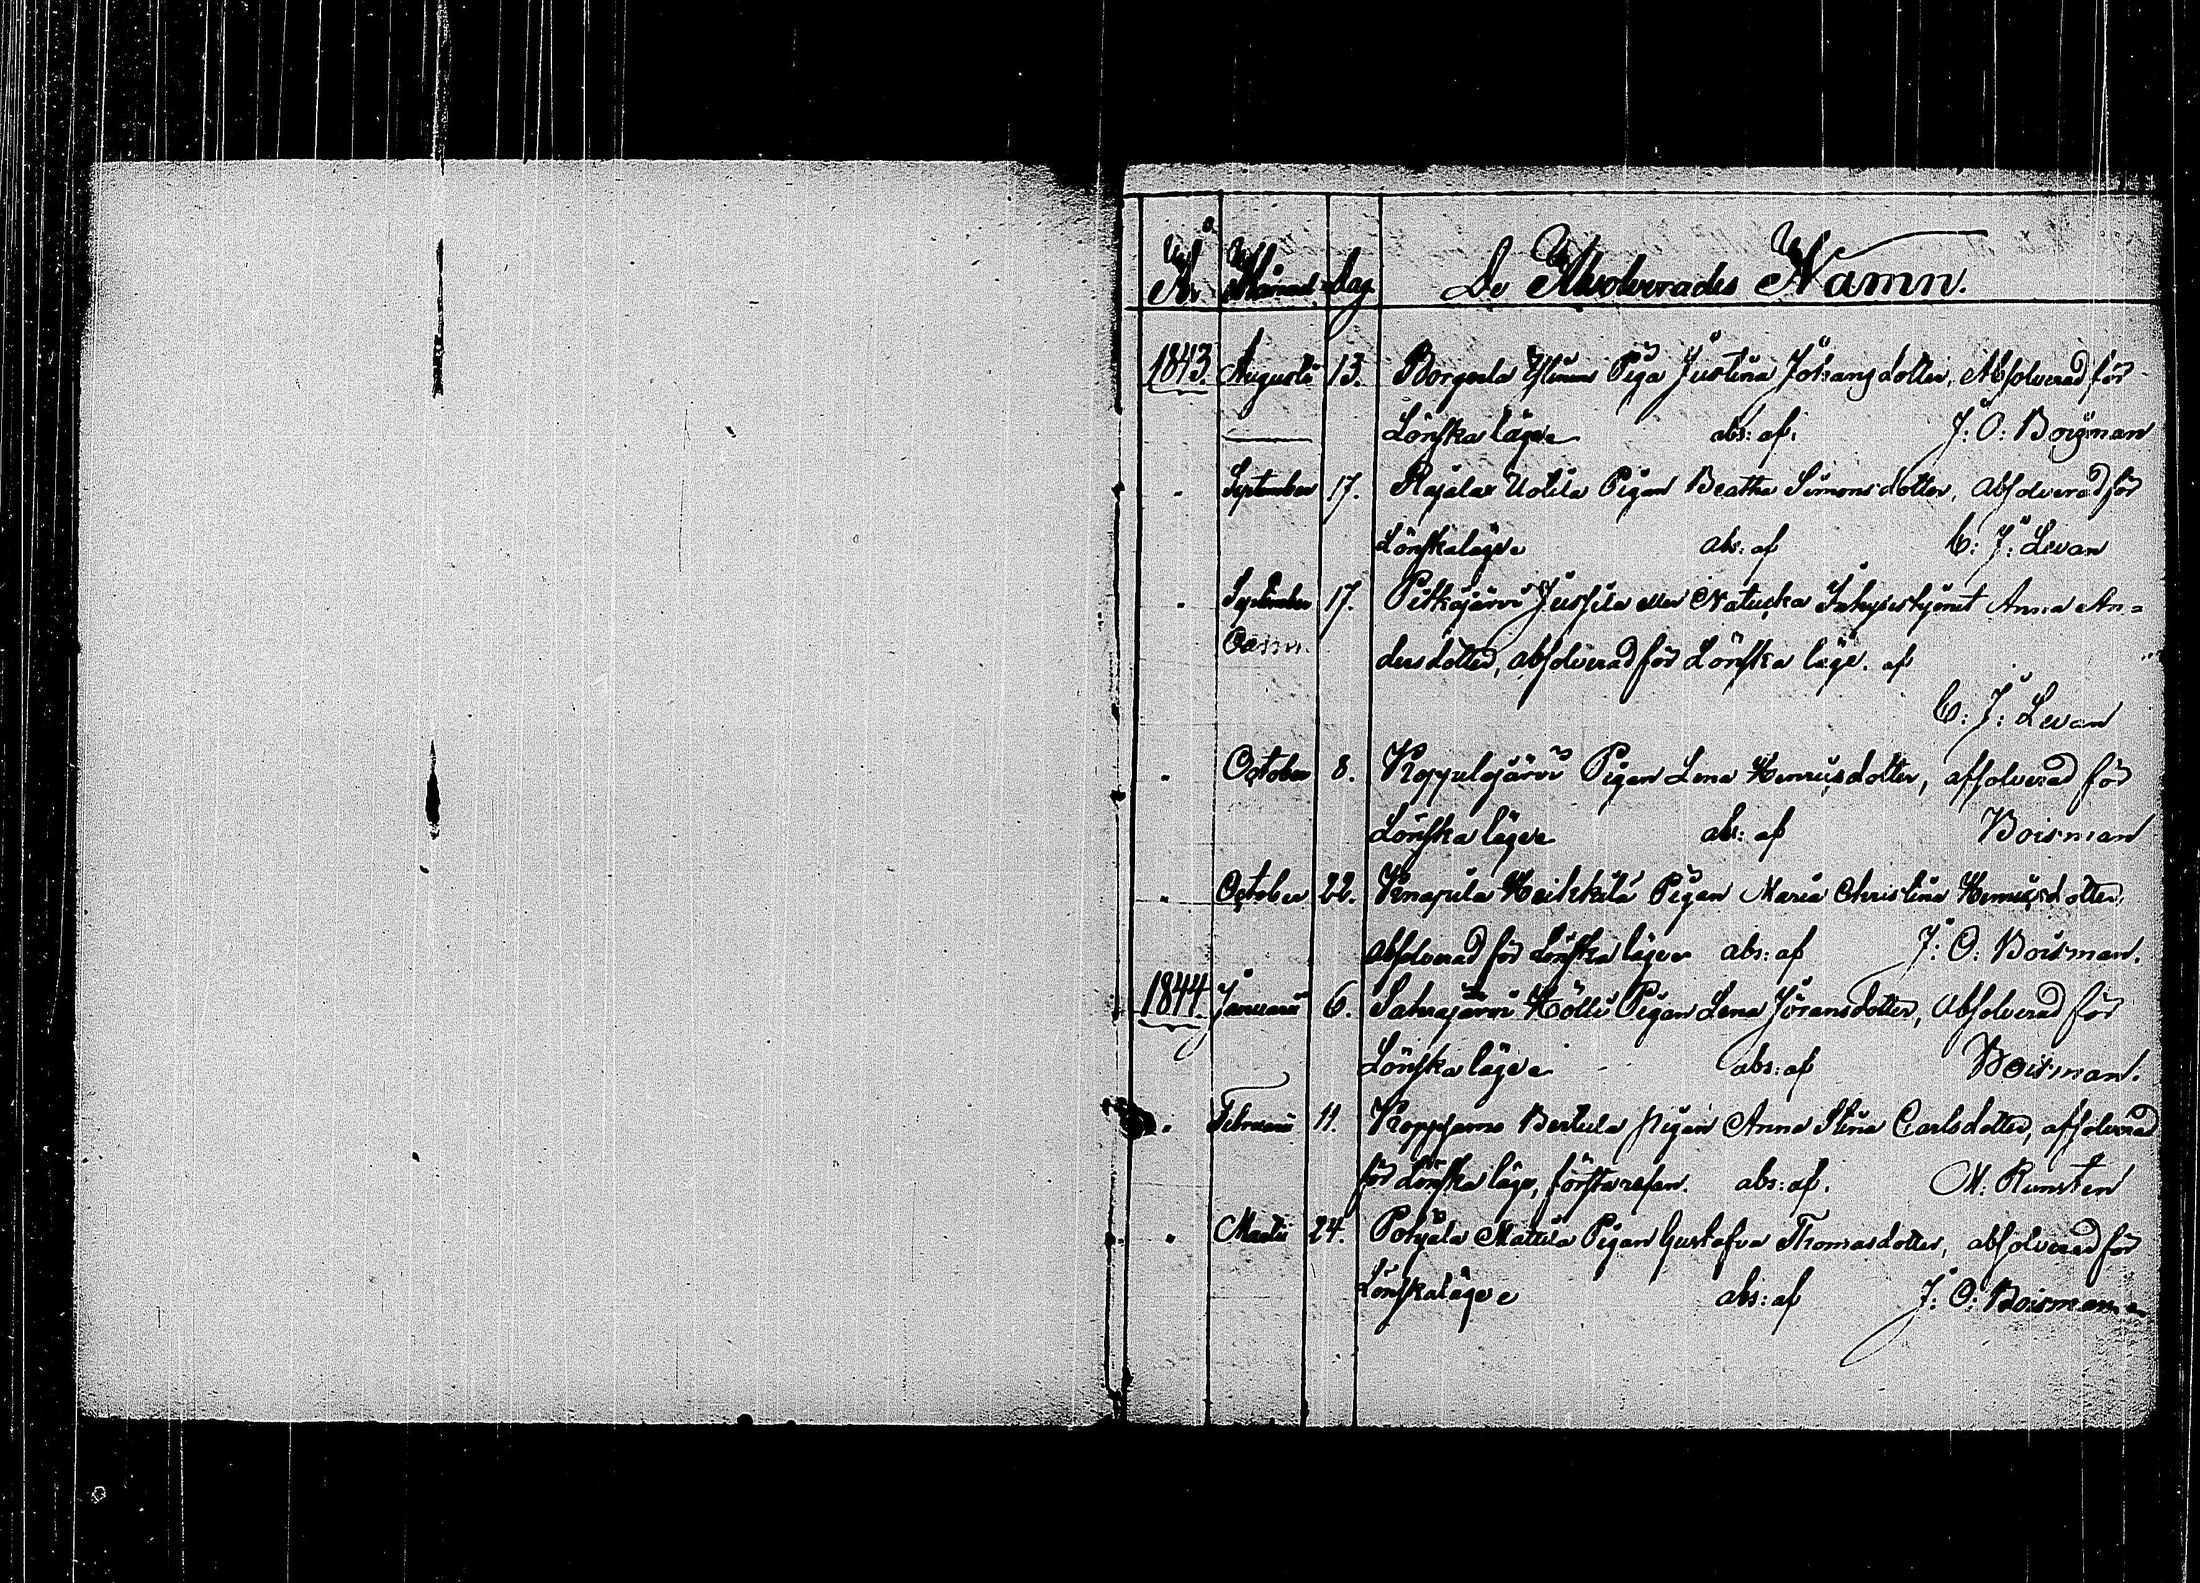 År Månad Dag De Absolverades Namn.
1843. Augusti 13. Borgerla Piga Justina Johansdotter, Absolverad för
Lönskaläge abs: af. J: O: Boisman
" September 17. Rajala Uotila Pigan Beatha Simonsdotter, absolverad för
Lönskaläge abs: af C: J: Levan
" September 17. Pitkäjärvi Jussila eller Natucka Inhyseshjonet Anna An=
dersdotter, absolverad för Lönska läge. af
C: J: Levan
" October 8. Kuppulajärvi Pigan Lena Henricsdotter, afsolverad för
Lönska läge abs: af Boisman
" October 22. Knapila Heikkilä Pigan Maria Christina Henricsdotter,
absolverad för Lönska läge abs: af J: O: Boisman.
1844. Januarii 6. Sahajärvi Hölli Pigan Lena Jöransdotter, Absolverad för
Lönska läge abs: af Boisman.
" Februarii 11. Bertula pigan Anna Stina Carlsdotter, afsolverad
för Lönska läge, första resan. abs: af. M: Runsten
" Martii 24. Pohjala Mattila Pigan Gustafva Thomasdotter, absolverad för
Lönskaläge abs: af J: O: Boisman